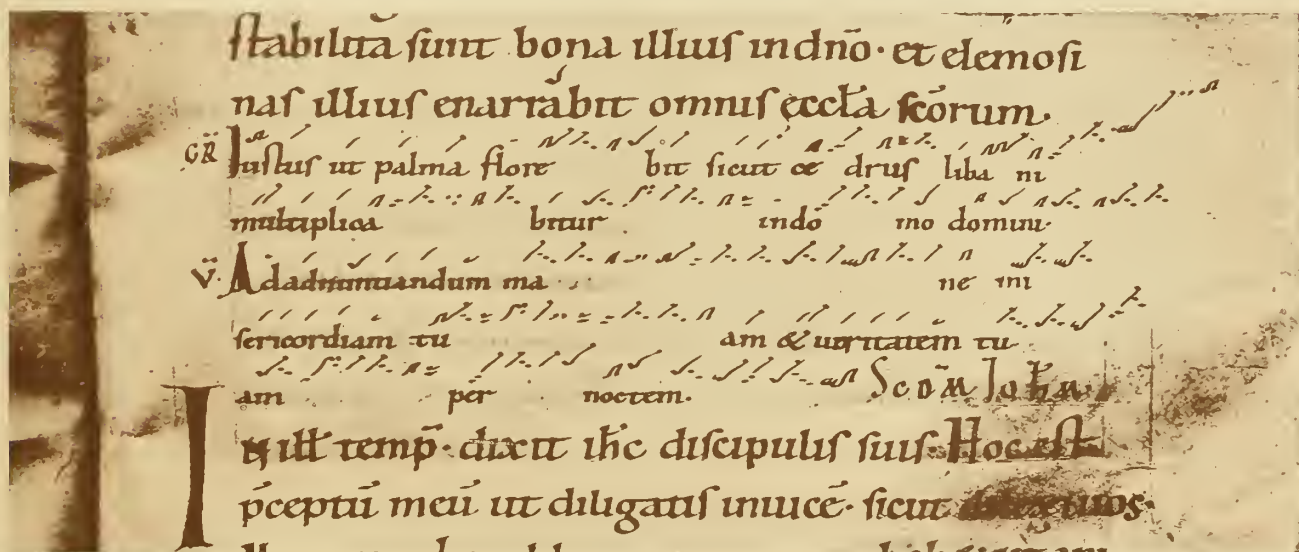 stabilita sunt bona illius indnō· et elemosi
nas illius enarrabit omnis eccła scōrum·
GR̄ Iustus ut palma flore bit sicut ce drus liba ni
multiplica bitur indo mo domini·
V̈· Adadnuntiandum ma ne mi
sericordiam tu am & ueritatem tu
am per noctem. Scdm Iohn·
In illł temp̄· dixit ihc discipulis suis· Hoc est
p̄ceptū meū ut diligatis inuicē· sicut dilexi uos·